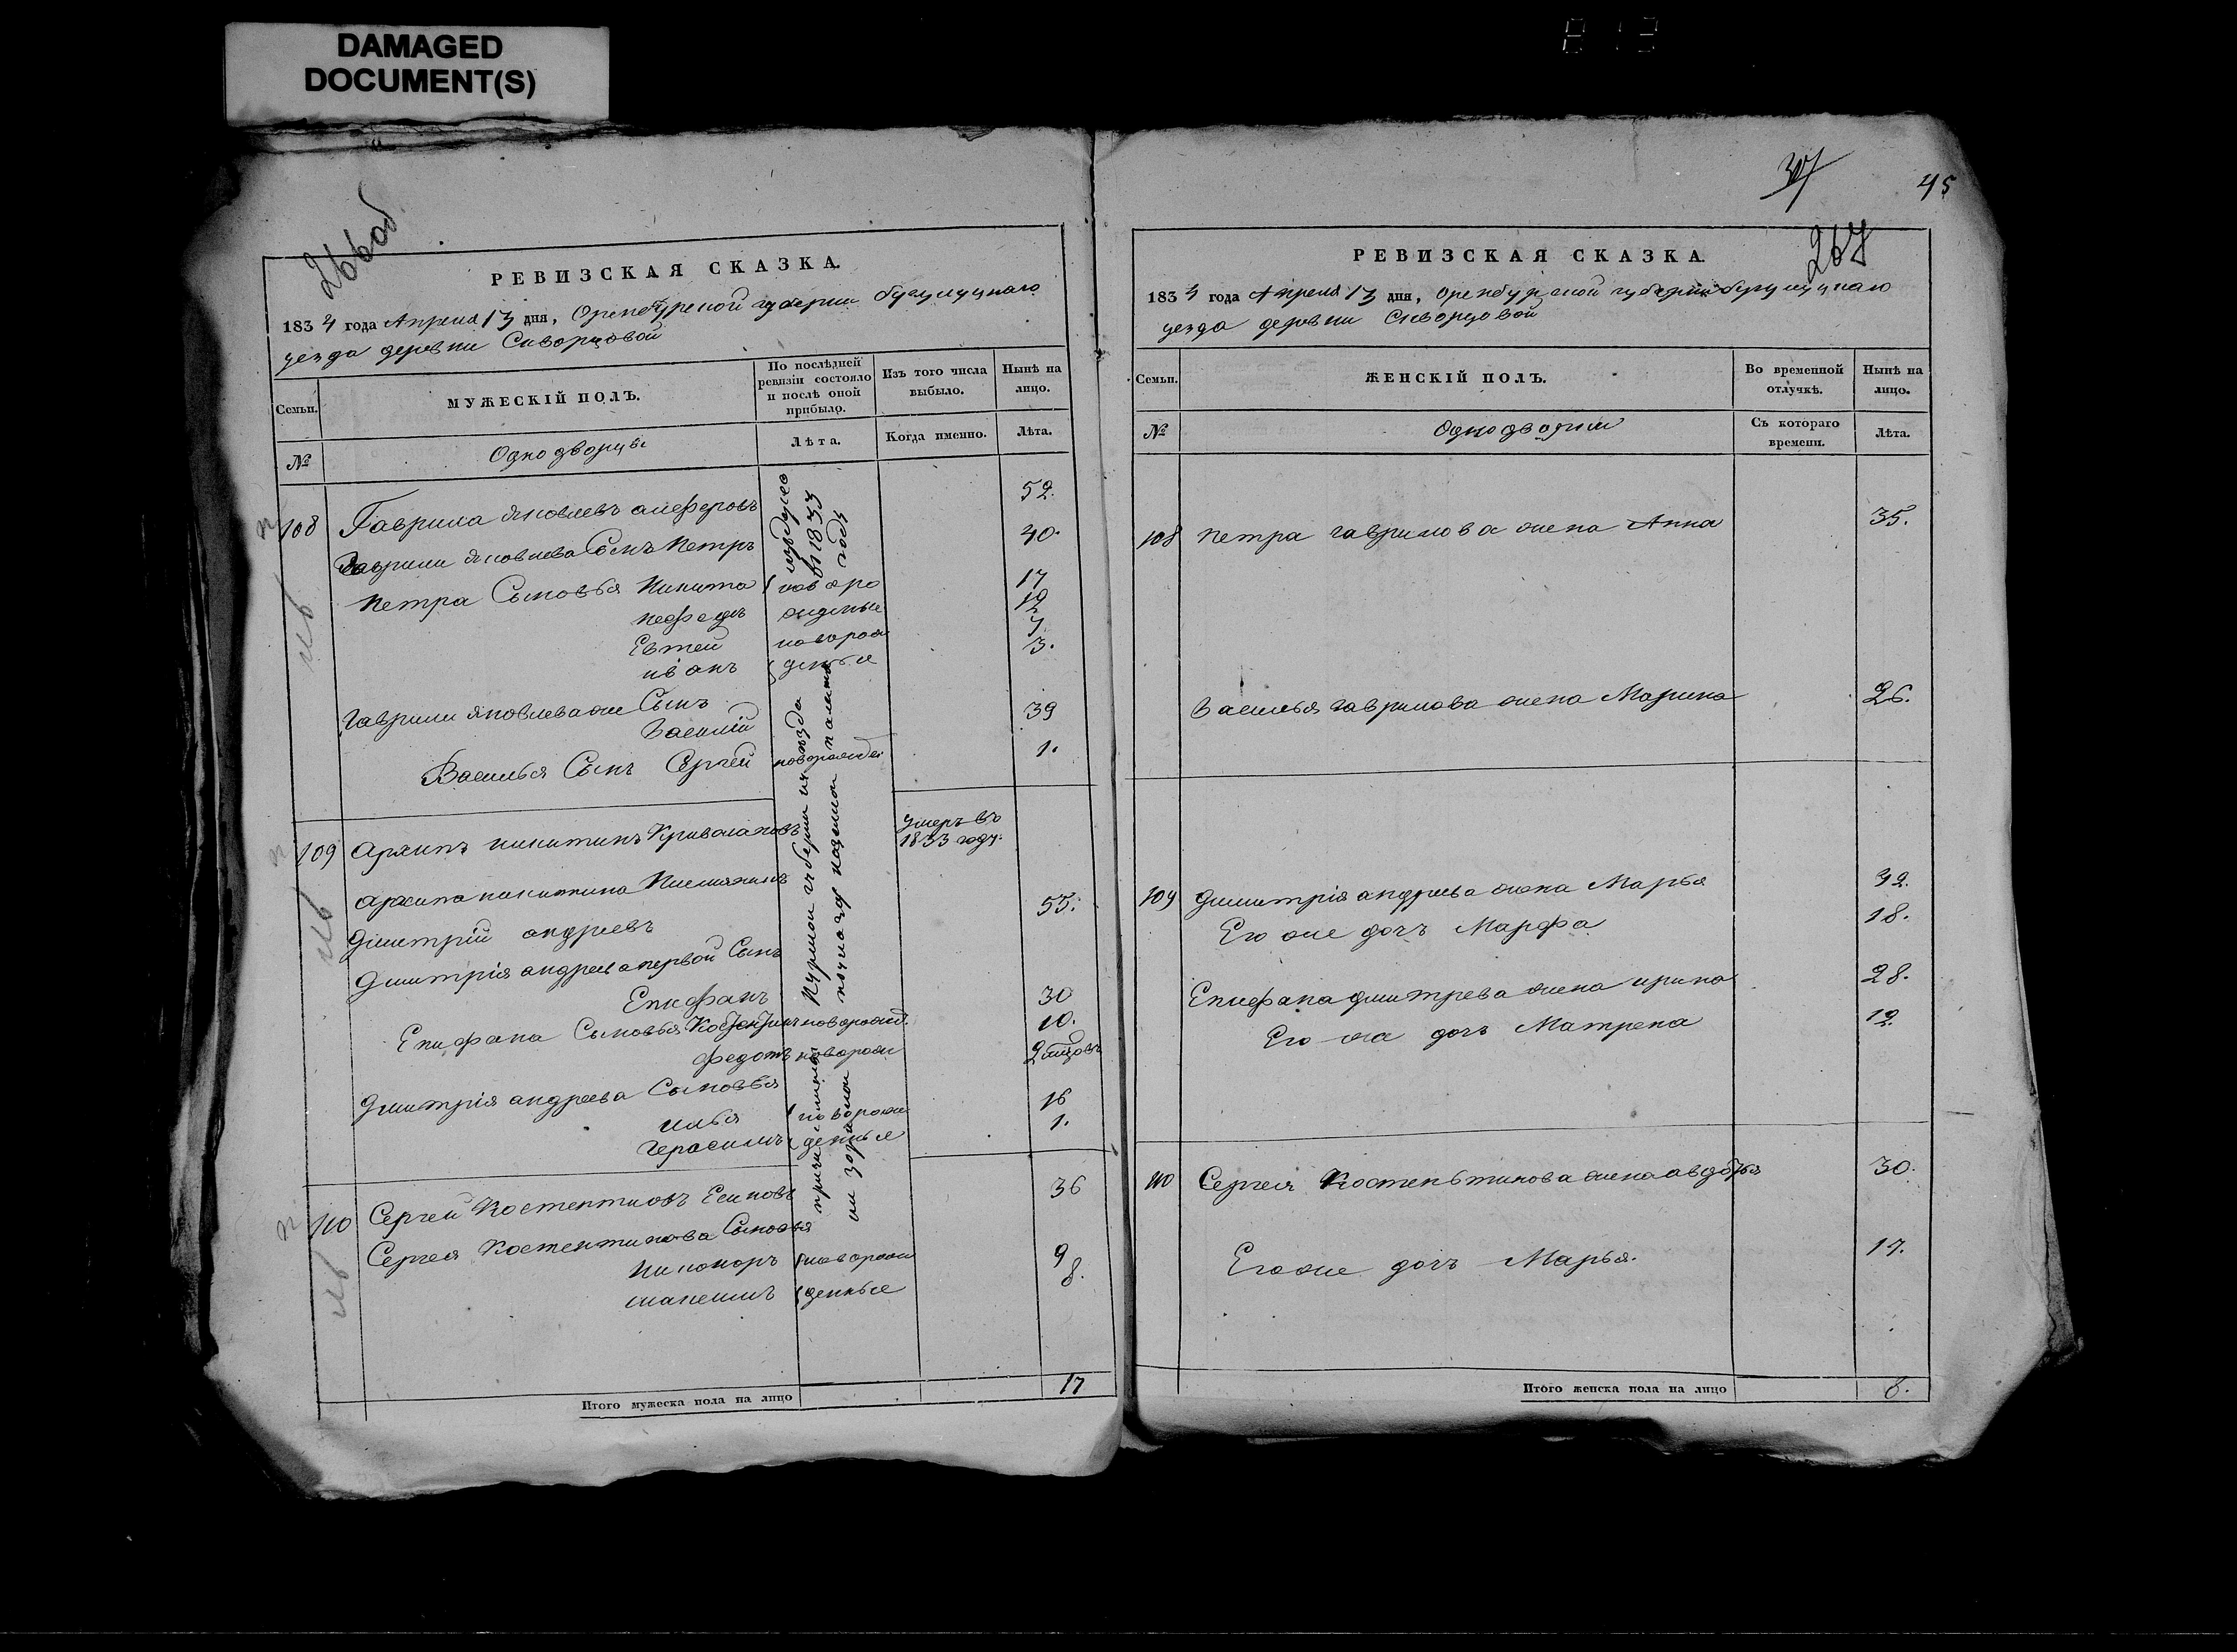 DAMAGED
DOCUMENT(S)
266об
РЕВИЗСКАЯ СКАЗКА.
1834 года Апреля 13 дня, Оренбурской губернии бугулуцкаго
уезда деревни Скворцовой
Семьи.
МУЖЕСКІЙ ПОЛЪ.
По послѣдней
ревизіи состояло
и послѣ оной
прибыло.
Изъ того числа
выбыло.
Нынѣ на
лицо.
№
Однодворцы
Лѣта.
Когда именно.
Лѣта.
108 Гаврила Яковлевъ алферовъ 52.
Гаврилы Яковлева Сынъ Петръ 40.
Петра Сыновья Никита новоро 17
нефедъ жденые 12
Евтей новорож 7
иванъ деные 3.
Гаврилы Яковлева же Сынъ
Василій 39
Василья Сынъ Сергей новорожден 1.
109 Архипъ никитинъ умеръ въ
1833 году.
Архипа никитина Племяникъ
Дмитрій андреевъ 55.
Дмитрія андреева первой Сынъ
Епифанъ 30
Епифана Сыновья новорожд. 10.
федотъ новорож 2
Дмитрія андреева Сыновья
илья новорож 16
герасимъ деные 1.
110 Сергей Костентиновъ Есиповъ 36
Сергея Костентинова Сыновья
Никоноръ новорож 9
деные 8.
въ 1833
годѣ
губернии
Итого мужеска пола на лицо 17
37
45
267
РЕВИЗСКАЯ СКАЗКА.
1834 года Апреля 13 дня, Оренбурской губернии бугулуцкаго
уезда деревни Скворцовой
Семьи.
ЖЕНСКІЙ ПОЛЪ.
Во временной
отлучкѣ.
Нынѣ на
лицо.
№
Однодворки
Съ котораго
времени.
Лѣта.
108 Петра гаврилова жена Анна 35.
Василья гаврилова жена Марина 26.
109 Дмитрія андреева жена Марья
Его же дочь Марфа 18.
Епифана дмитрева жена ирина 28.
Его жа дочь Матрена 12.
110 Сергея Костеньтинова жена авдотья 30.
Его же дочь Марья. 17.
Итого женска пола на лицо 8.